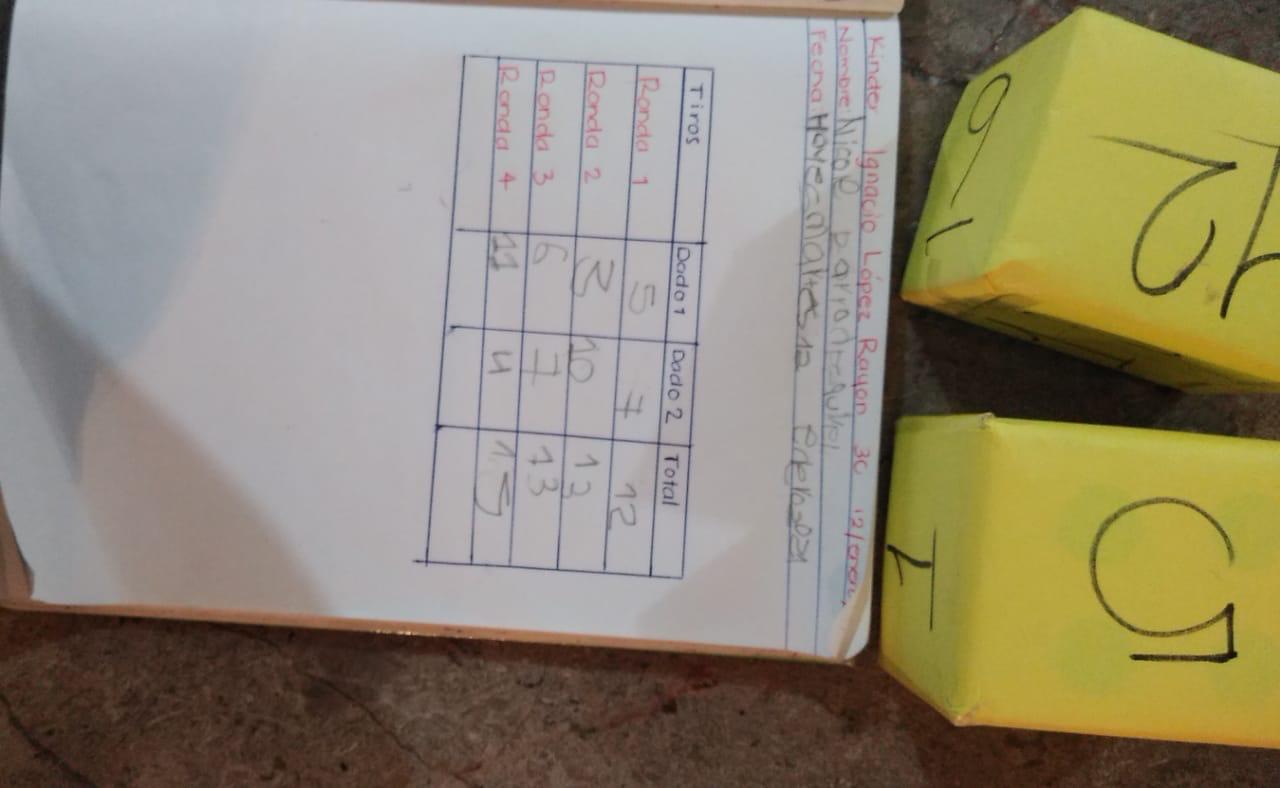 Kinder Ignacio López Rayon 3C 12/enero,
Nombre: Nicol
Fecha: Hoy es martes 12 Enero 2021
Tiros Dado 1 Dado 2 Total
Ronda 1 5 7 12
Ronda 2 3 10 13
Ronda 3 6 7 13
Ronda 4 11 4 15
12
9
5
1